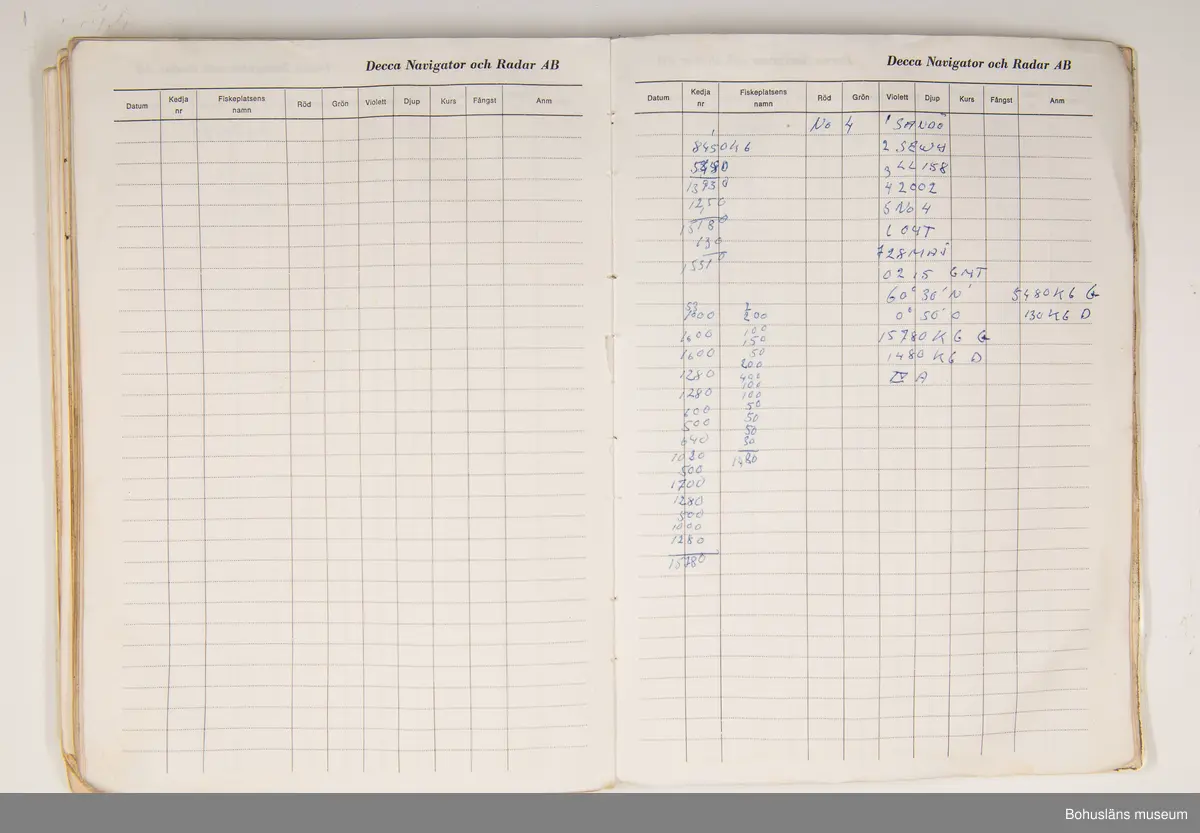 Decca Navigator och Radar AB
Datum Kedja nr Fiskeplatsens namn Röd Grön Violett Djup Kurs Fångst Anm
Decca Navigator och Radar AB
Datum Kedja nr Fiskeplatsens namn Röd Grön Violett Djup Kurs Fångst Anm
No 4
8450 KG
5480
13930
1250
15180
130
1600
1600
1280
1280
600
500
640
1020
500
1700
1280
500
1000
1280
15780
2
200
100
150
50
200
400
100
100
50
50
50
30
1480
1 SANDÖ
2 SEWH
3 LL 158
4 2002
5 No 4
7 28 MAJ
0215 GMT
60° 30' N
0° 50' O
15780 KG G
1480 KG D
IV A
5480 KG G
130 KG D
Bohusläns museum